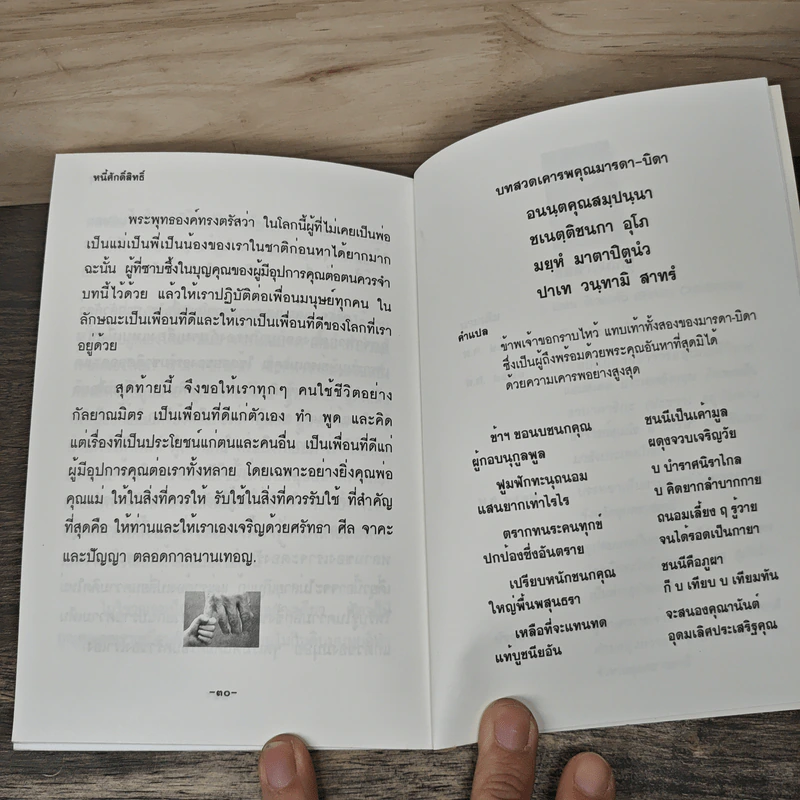 หนี้ศักดิ์สิทธิ์
พระพุทธองค์ทรงตรัสว่า ในโลกนี้ผู้ที่ไม่เคยเป็นพ่อ
เป็นแม่เป็นพี่เป็นน้องของเราในชาติก่อนหาได้ยากมาก
ฉะนั้น ผู้ที่ซาบซึ้งในบุญคุณของผู้มีอุปการคุณต่อตนควรจำ
บทนี้ไว้ด้วย แล้วให้เราปฏิบัติต่อเพื่อนมนุษย์ทุกคน ใน
ลักษณะเป็นเพื่อนที่ดีและให้เราเป็นเพื่อนที่ดีของโลกที่เรา
อยู่ด้วย
สุดท้ายนี้ จึงขอให้เราทุกๆ คนใช้ชีวิตอย่าง
กัลยาณมิตร เป็นเพื่อนที่ดีแก่ตัวเอง ทำ พูด และคิด
แต่เรื่องที่เป็นประโยชน์แก่ตนและคนอื่น เป็นเพื่อนที่ดีแก่
ผู้มีอุปการคุณต่อเราทั้งหลาย โดยเฉพาะอย่างยิ่งคุณพ่อ
คุณแม่ ให้ในสิ่งที่ควรให้ รับใช้ในสิ่งที่ควรรับใช้ ที่สำคัญ
ที่สุดคือ ให้ท่านและให้เราเองเจริญด้วยศรัทธา ศีล จาคะ
และปัญญา ตลอดกาลนานเทอญ.
-๓๐-
บทสวดเคารพคุณมารดา-บิดา
อนนฺตคุณสมฺปนฺนา
ชเนตฺติชนกา อุโภ
มยฺหํ มาตาปิตูนํว
ปาเท วนฺทามิ สาทรํ
คำแปล
ข้าพเจ้าขอกราบไหว้ แทบเท้าทั้งสองของมารดา-บิดา
ซึ่งเป็นผู้ถึงพร้อมด้วยพระคุณอันหาที่สุดมิได้
ด้วยความเคารพอย่างสูงสุด
ข้าฯ ขอนบชนกคุณ ชนนีเป็นเค้ามูล
ผู้กอบนุกูลพูล ผดุงจวบเจริญวัย
ฟูมฟักทะนุถนอม บ บำราศนิราไกล
แสนยากเท่าไรไร บ คิดยากลำบากกาย
ตรากทนระคนทุกข์ ถนอมเลี้ยง ฤ รู้วาย
ปกป้องซึ่งอันตราย จนได้รอดเป็นกายา
เปรียบหนักชนกคุณ ชนนีคือภูผา
ใหญ่พื้นพสุนธรา ก็ บ เทียบ บ เทียมทัน
เหลือที่จะแทนทด จะสนองคุณานันต์
แท้บูชนียอัน อุดมเลิศประเสริฐคุณ